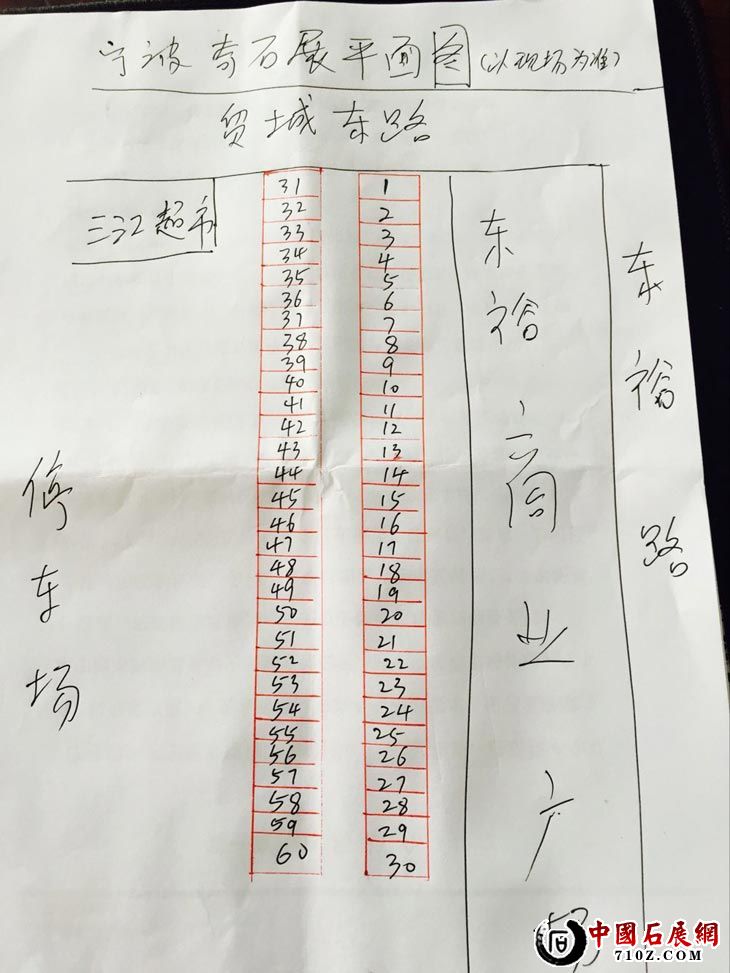 宁波奇石展平面图(以现场为准)
贸城东路
三江超市
31
32
33
34
35
36
37
38
39
40
41
42
43
44
45
46
47
48
49
50
51
52
53
54
55
56
57
58
59
60
1
2
3
4
5
6
7
8
9
10
11
12
13
14
15
16
17
18
19
20
21
22
23
24
25
26
27
28
29
30
停车场
东裕商业广场
东裕路
中國石展網
710Z.COM